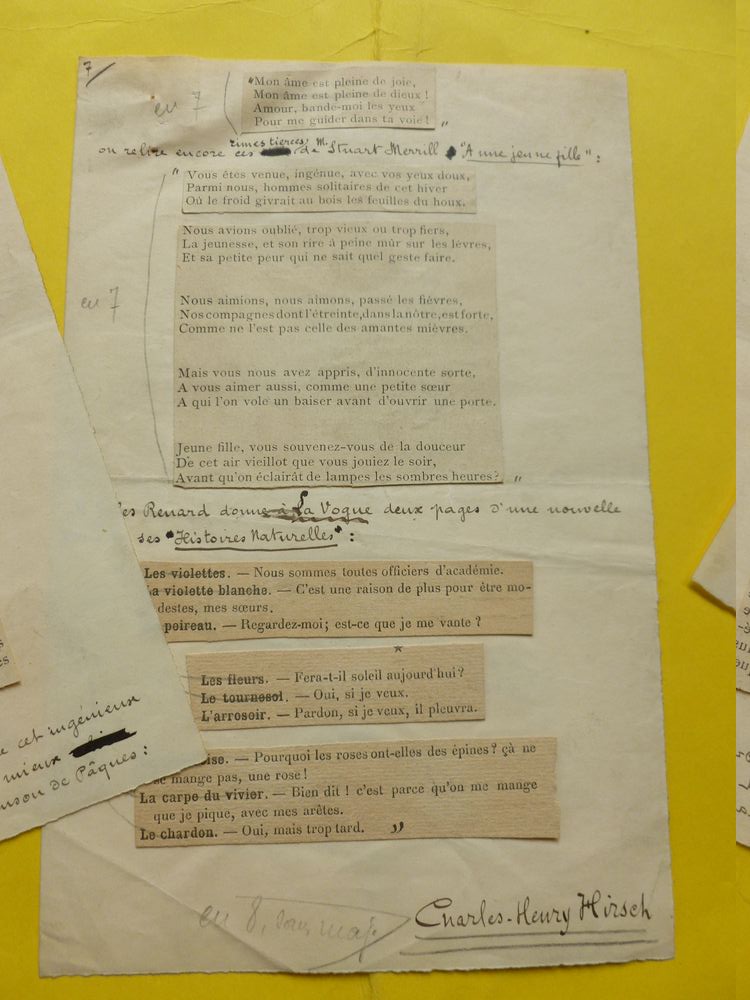 7/
en 7
"Mon âme est pleine de joie,
Mon âme est pleine de dieux !
Amour, bande-moi les yeux
Pour me guider dans ta voie ! "
on relire encore ces rimes tierces de M. Stuart Merrill "A une jeune fille" :
" Vous êtes venue, ingénue, avec vos yeux doux,
Parmi nous, hommes solitaires de cet hiver
Où le froid givrait au bois les feuilles du houx.
Nous avions oublié, trop vieux ou trop fiers,
La jeunesse, et son rire à peine mûr sur les lèvres,
Et sa petite peur qui ne sait quel geste faire.
en 7
Nous aimions, nous aimons, passé les fièvres,
Nos compagnes dont l'étreinte, dans la nôtre, est forte,
Comme ne l'est pas celle des amantes mièvres.
Mais vous nous avez appris, d'innocente sorte,
A vous aimer aussi, comme une petite sœur
A qui l'on vole un baiser avant d'ouvrir une porte.
Jeune fille, vous souvenez-vous de la douceur
De cet air vieillot que vous jouiez le soir,
Avant qu'on éclairât de lampes les sombres heures? "
es Renard donne à La Vogue deux pages d'une nouvelle
ses "Histoires Naturelles" :
Les violettes. — Nous sommes toutes officiers d'académie.
a violette blanche. — C'est une raison de plus pour être mo-
destes, mes sœurs.
poireau. — Regardez-moi ; est-ce que je me vante ?
*
Les fleurs. — Fera-t-il soleil aujourd'hui ?
Le tournesol. — Oui, si je veux.
L'arrosoir. — Pardon, si je veux, il pleuvra.
oise. — Pourquoi les roses ont-elles des épines ? çà ne
se mange pas, une rose !
La carpe du vivier. — Bien dit ! c'est parce qu'on me mange
que je pique, avec mes arêtes.
Le chardon. — Oui, mais trop tard. "
en 8, sans maj.
Charles-Henry Hirsch
s
es
e cet ingénieux
mieux
nson de Pâques :